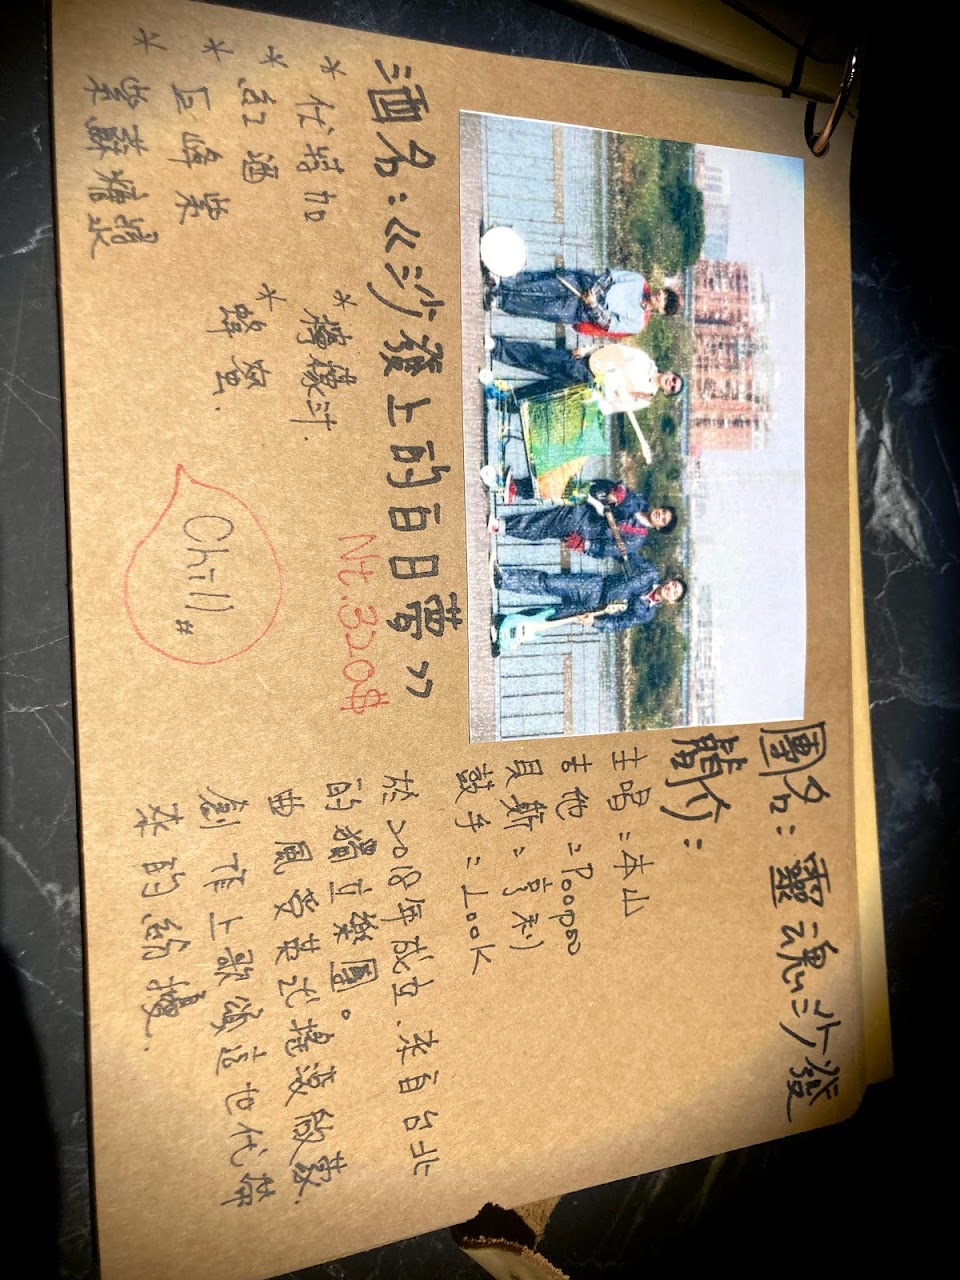 團名：靈魂沙發
簡介：
主唱：本山
吉他：Poopoo
貝斯：亨利
鼓手：Look
於2018年成立.來自台北
的獨立樂團。
曲風受英式搖滾啟蒙.
創作上歌頌這世代帶
來的紛擾.
酒名：《沙發上的白日夢》
Nt.320$
*伏特加
*紅酒
*巨峰紫
*紫蘇糖漿
*檸檬汁.
*蜂蜜.
Chill
#